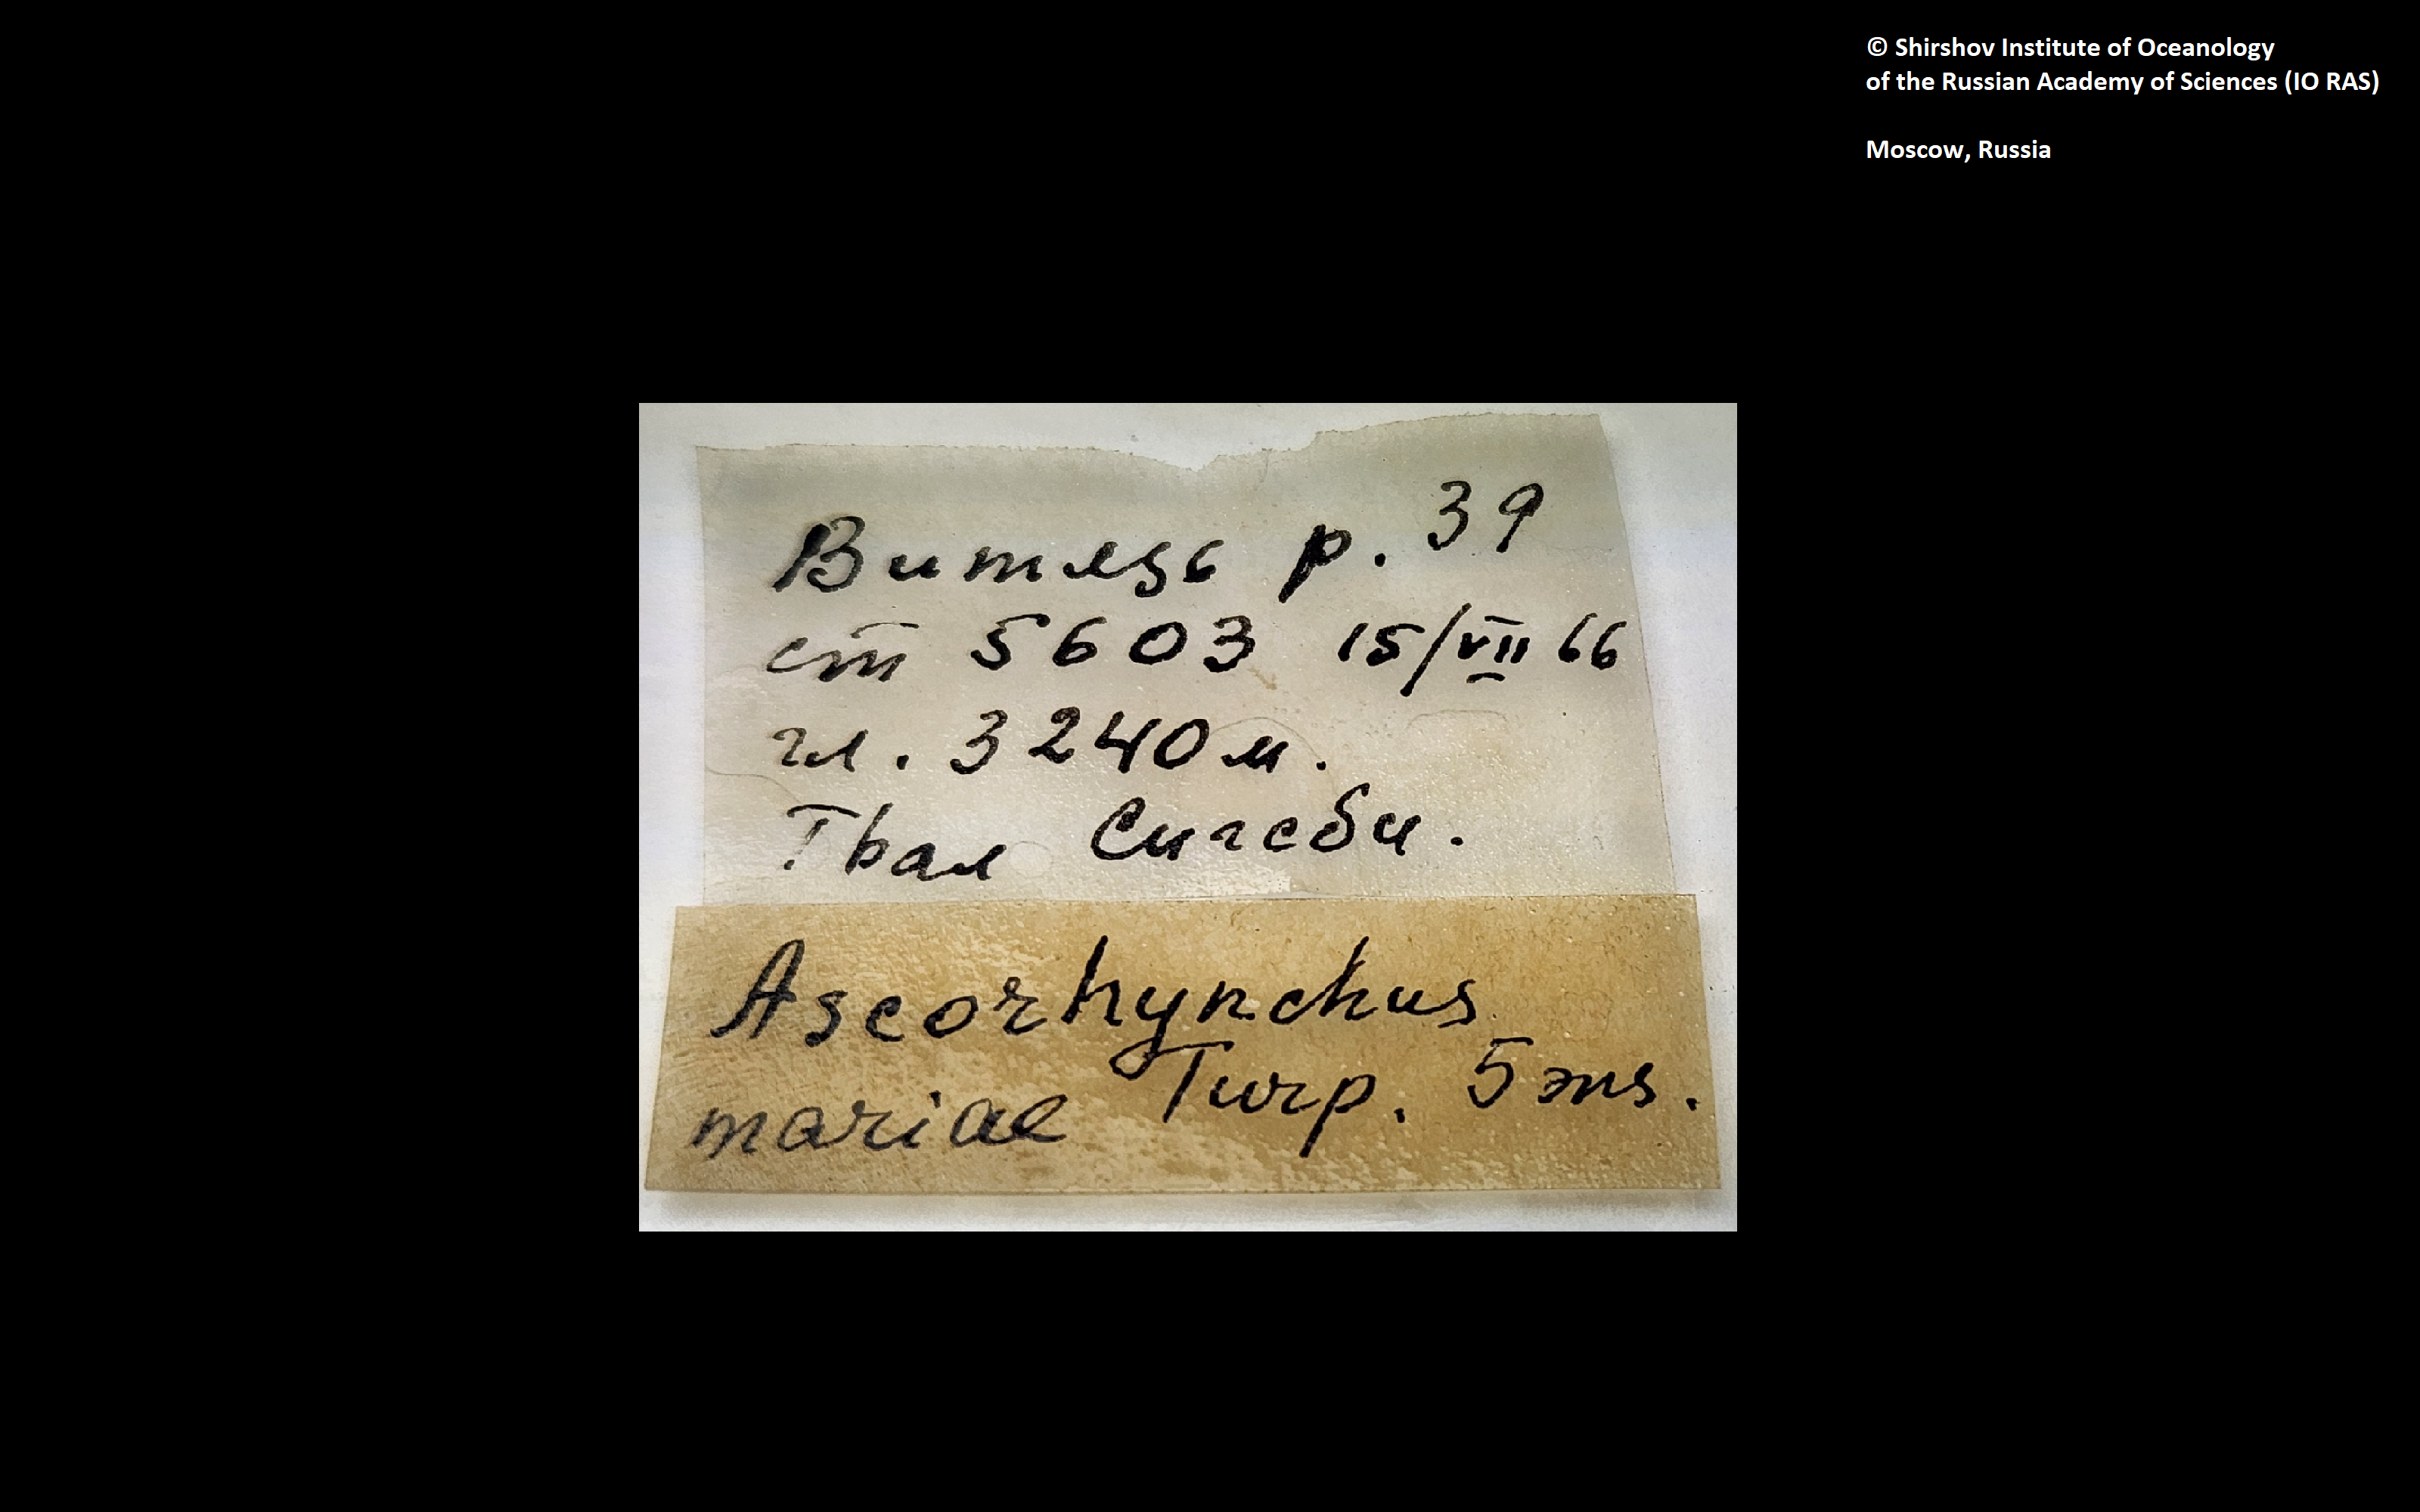 © Shirshov Institute of Oceanology
of the Russian Academy of Sciences (IO RAS)
Moscow, Russia
Витязь р. 39
ст 5603 15/VII 66
гл. 3240 м.
Трал Сигсби.
Ascorhynchus
mariae Turp. 5 экз.